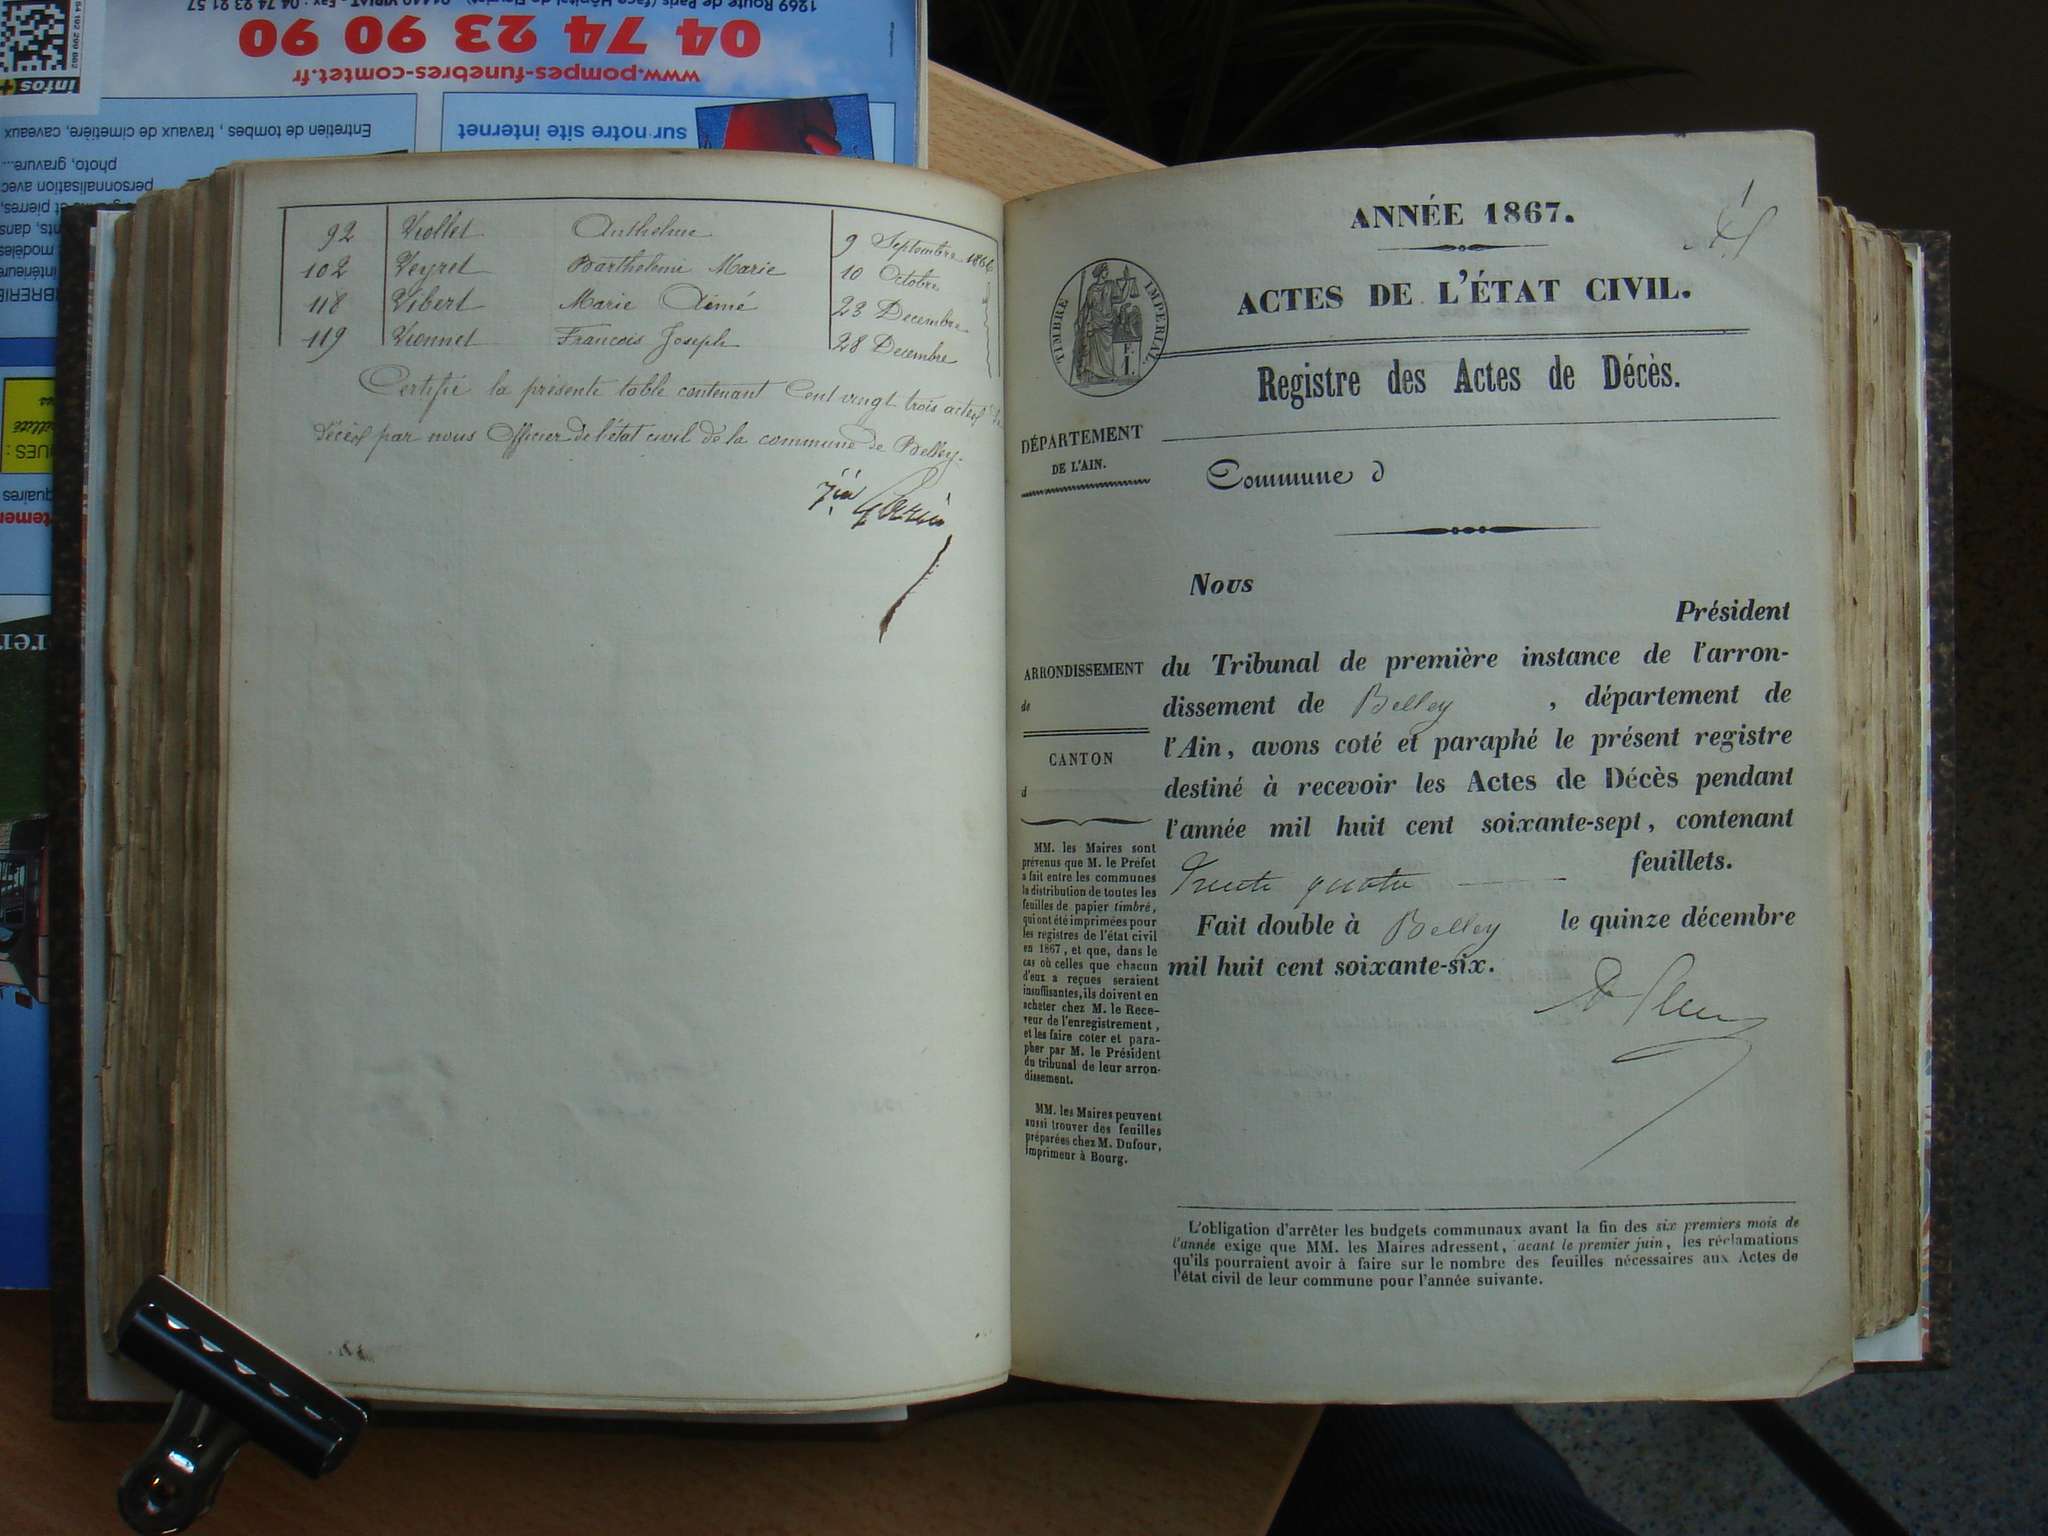 1269 Route de Paris (face Hôpital de Fleyriat) 01440 VIRIAT - Fax : 04 74 23 21 57
04 74 23 90 90
www.pompes-funebres-comtet.fr
infos+
sur notre site internet
Entretien de tombes, travaux de cimetière, caveaux
photo, gravure...
personnalisation avec
92 Viollet Anthelme 9 Septembre 1866
102 Veyret Barthelemi Marie 10 Octobre
118 Vibert Marie Aimé 23 Decembre
119 Vionnet Francois Joseph 28 Decembre
Certifié la présente table contenant Cent vingt trois actes de
décès par nous Officier de l'état civil de la commune de Belley.
1
ANNÉE 1867.
ACTES DE L'ÉTAT CIVIL.
TIMBRE IMPERIAL
F.
1.
Registre des Actes de Décès.
DÉPARTEMENT
DE L'AIN.
Commune d
Nous
Président
du Tribunal de première instance de l'arron-
dissement de Belley , département de
l'Ain, avons coté et paraphé le présent registre
destiné à recevoir les Actes de Décès pendant
l'année mil huit cent soixante-sept, contenant
Trente quatre feuillets.
Fait double à Belley le quinze décembre
mil huit cent soixante-six.
ARRONDISSEMENT
de
CANTON
d
MM. les Maires sont
prévenus que M. le Préfet
a fait entre les communes
la distribution de toutes les
feuilles de papier timbré,
qui ont été imprimées pour
les registres de l'état civil
en 1867, et que, dans le
cas où celles que chacun
d'eux a reçues seraient
insuffisantes, ils doivent en
acheter chez M. le Rece-
veur de l'enregistrement,
et les faire coter et para-
pher par M. le Président
du tribunal de leur arron-
dissement.
MM. les Maires peuvent
aussi trouver des feuilles
préparées chez M. Dufour,
imprimeur à Bourg.
L'obligation d'arrêter les budgets communaux avant la fin des six premiers mois de
l'année exige que MM. les Maires adressent, avant le premier juin, les réclamations
qu'ils pourraient avoir à faire sur le nombre des feuilles nécessaires aux Actes de
l'état civil de leur commune pour l'année suivante.